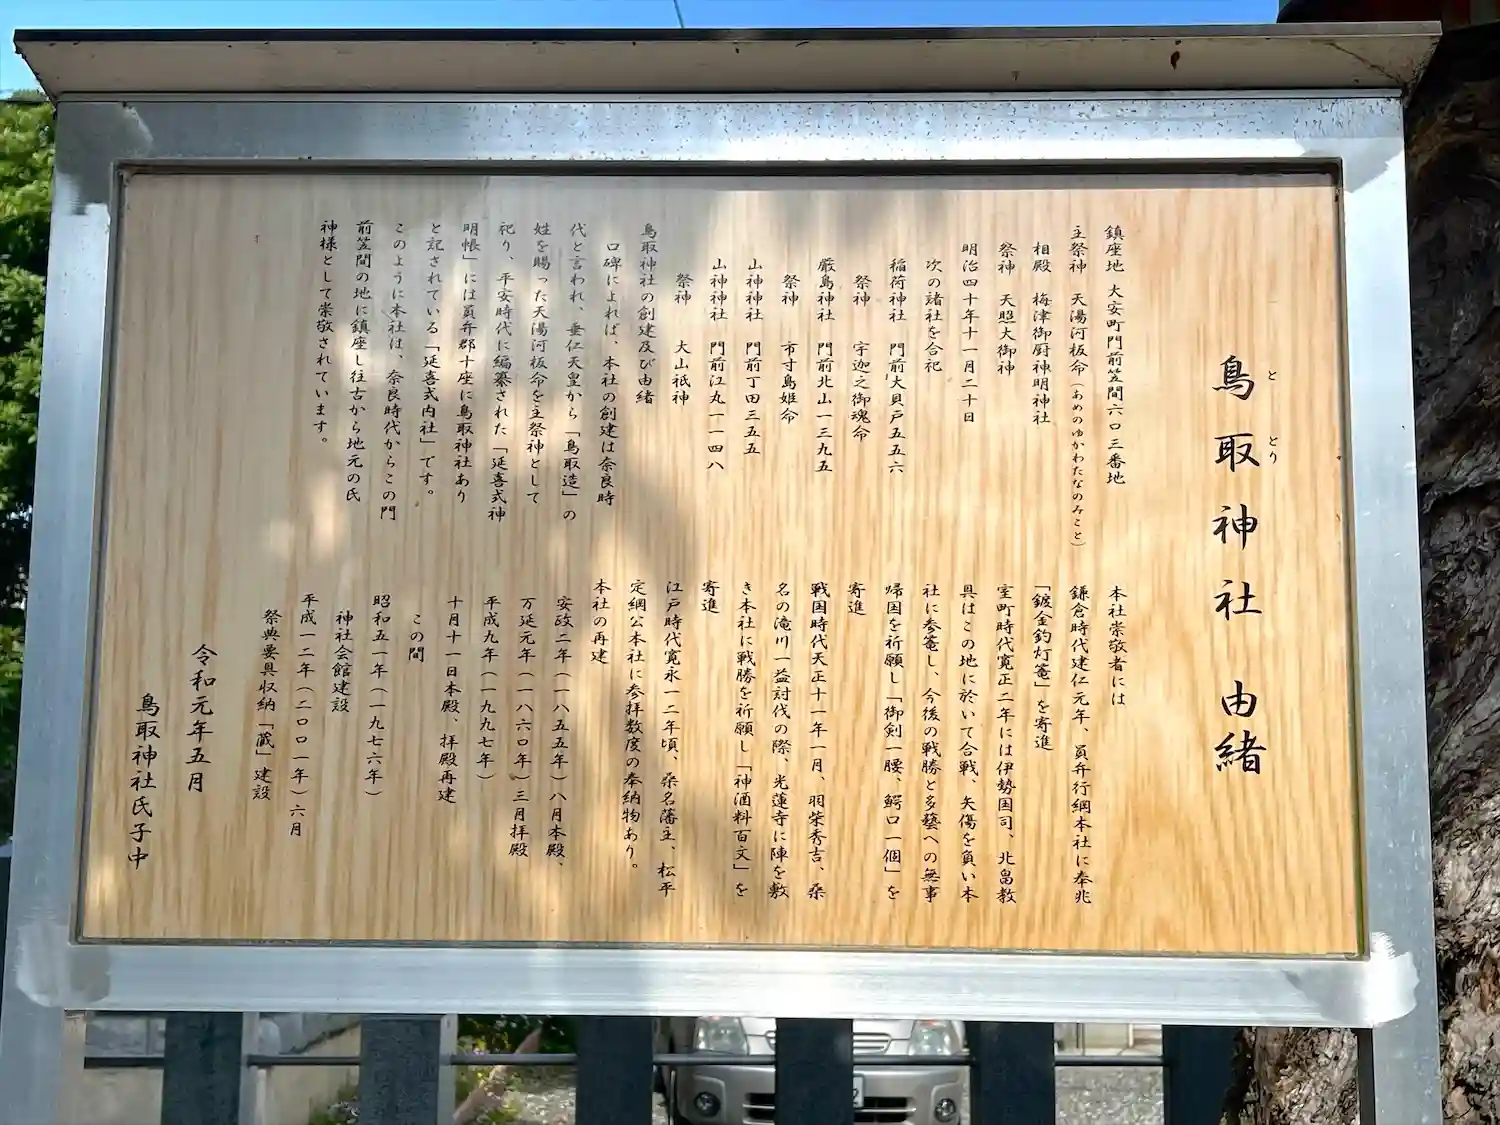 鳥取神社 由緒
とっとり
鎮座地 大安町門前笠間六口三番地
主祭神 天湯河板命(あめのゆかわたなのみこと)
相殿 梅津御厨神明神社
祭神 天照大御神
明治四十年十一月二十日
次の諸社を合祀
稲荷神社 門前大貝戸五五六
祭神 宇迦之御魂命
厳島神社 門前北山一三九五
祭神 市寸島姫命
山神神社 門前丁田三五五
山神神社 門前江丸一一四八
祭神 大山祇神
鳥取神社の創建及び由緒
口碑によれば、本社の創建は奈良時
代と言われ、垂仁天皇から「鳥取造」の
姓を賜った天湯河板命を主祭神として
祀り、平安時代に編纂された「延喜式神
明帳」には員弁郡十座に鳥取神社あり
と記されている「延喜式内社」です。
このように本社は、奈良時代からこの門
前笠間の地に鎮座し往古から地元の氏
神様として崇敬されています。
本社崇敬者には
鎌倉時代建仁元年、員弁行綱本社に奉兆
「鍍金釣灯篭」を寄進
室町時代寛正二年には伊勢国司、北畠教
具はこの地に於いて合戦、矢傷を負い本
社に参篭し、今後の戦勝と多藝への無事
帰国を祈願し「御剣一腰、鰐口一個」を
寄進
戦国時代天正十一年一月、羽柴秀吉、桑
名の滝川一益討伐の際、光蓮寺に陣を敷
き本社に戦勝を祈願し「神酒料百文」を
寄進
江戸時代寛永一二年頃、桑名藩主、松平
定綱公本社に参拝数度の奉納物あり。
本社の再建
安政二年(一八五五年)八月本殿、
万延元年(一八六〇年)三月拝殿
平成九年(一九九七年)
十月十一日本殿、拝殿再建
この間
昭和五一年(一九七六年)
神社会館建設
平成一二年(二〇〇一年)六月
祭典要具収納「蔵」建設
令和元年五月
鳥取神社氏子中